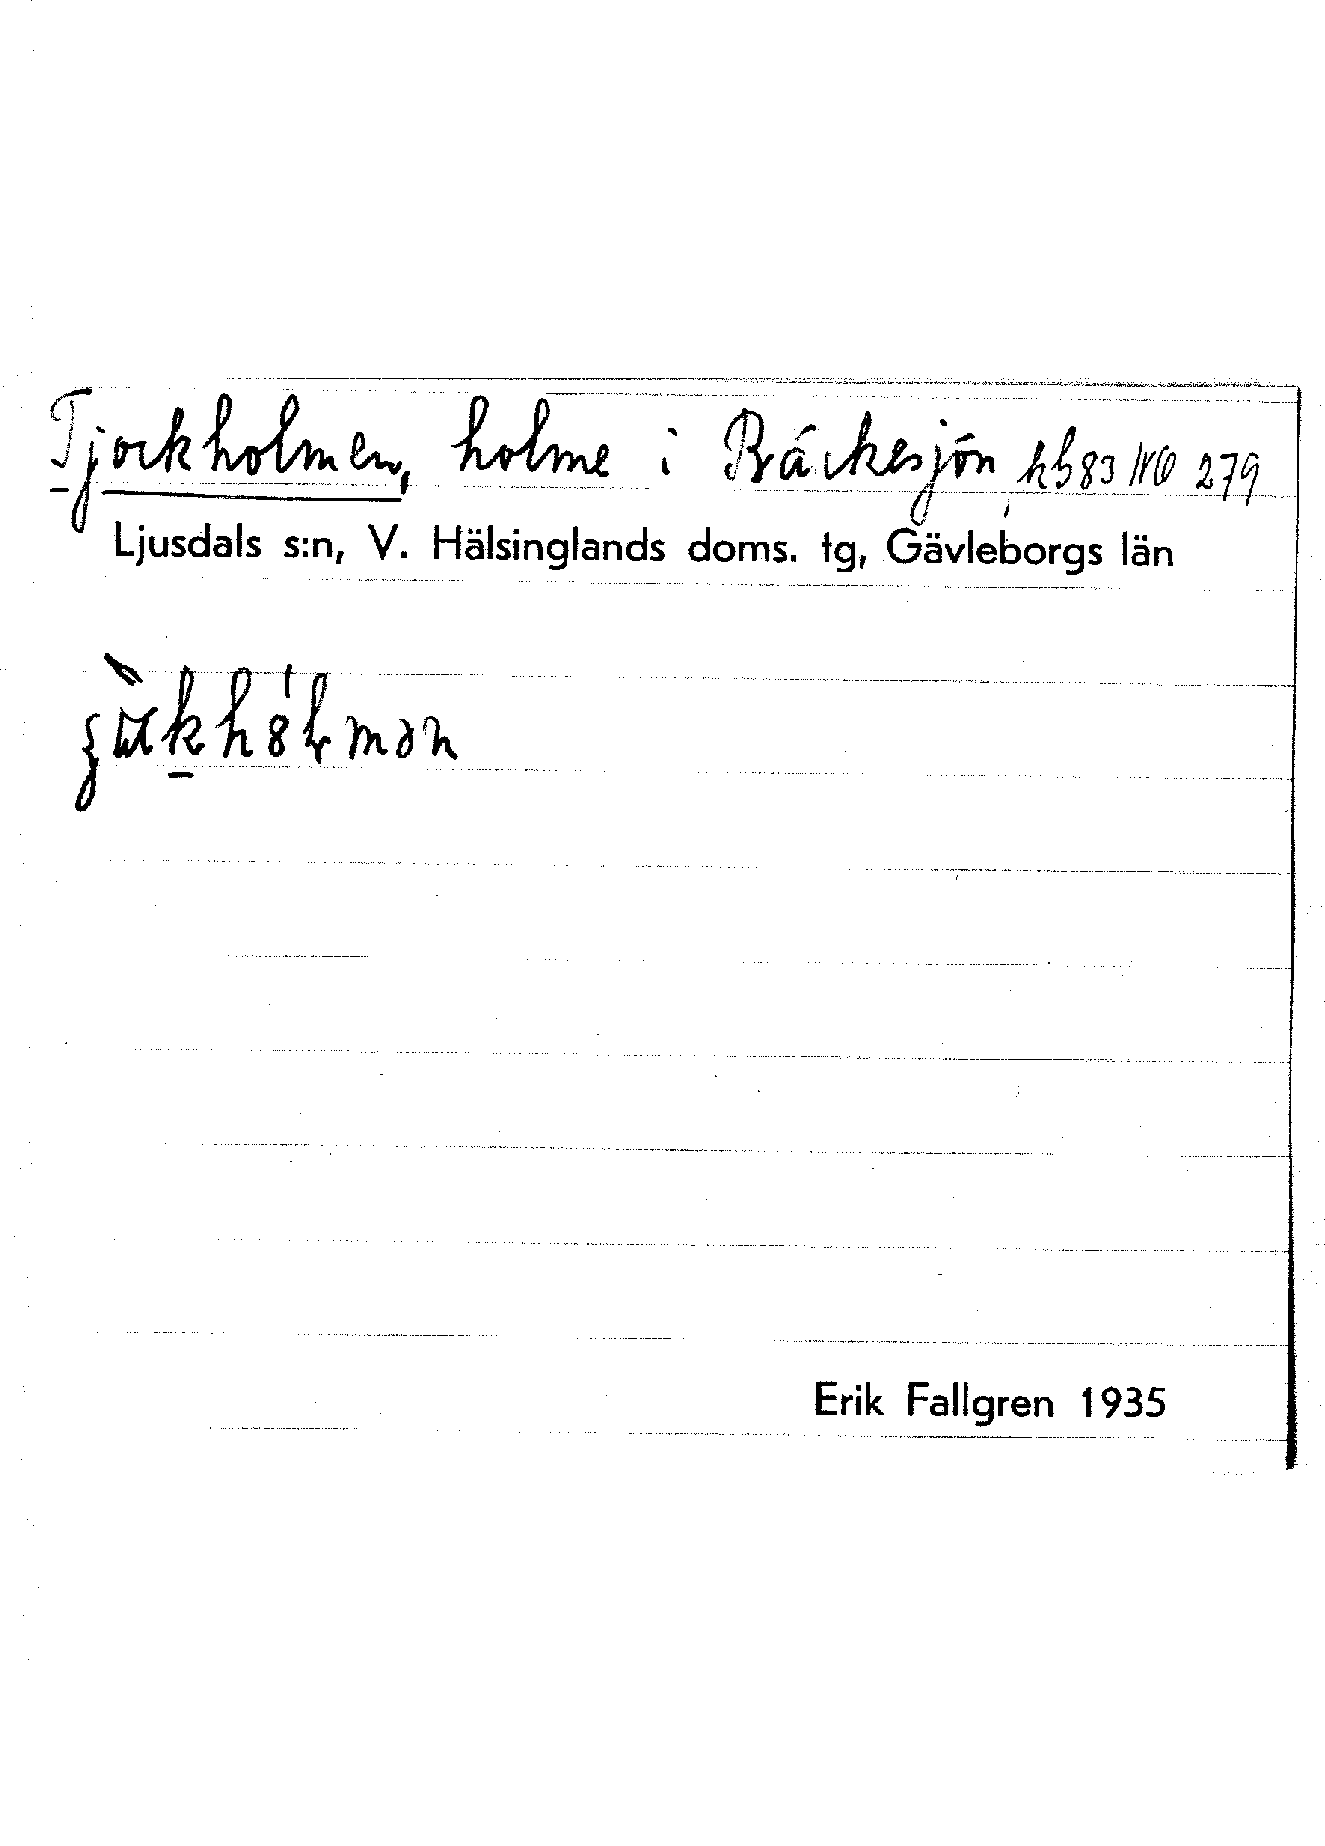 Tjockholmen, holme i Bäckesjön kb83 NO 279
Ljusdals s:n, V. Hälsinglands doms. tg, Gävleborgs län
Erik Fallgren 1935